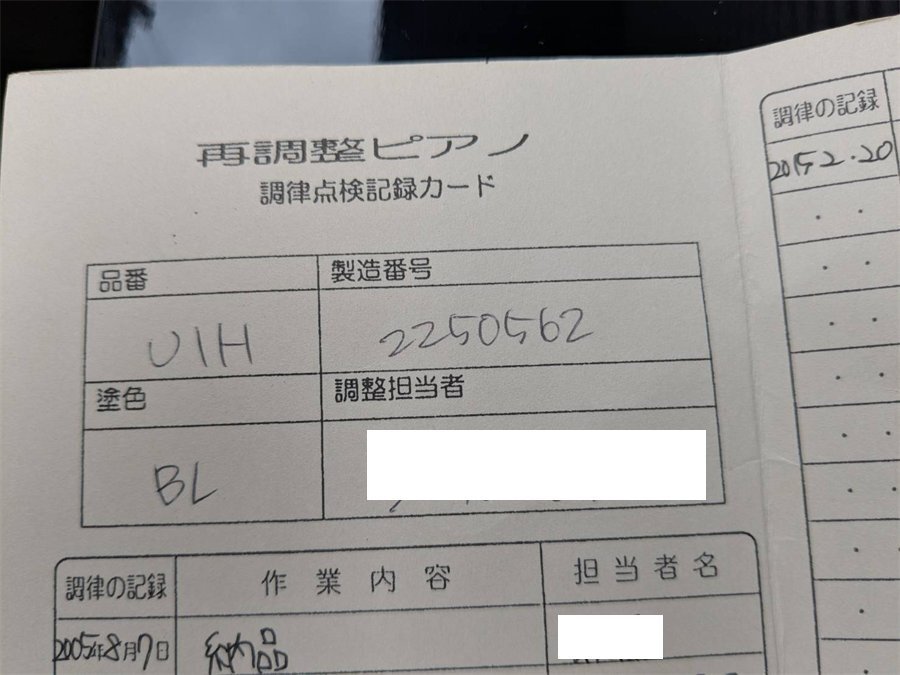 再調整ピアノ
調律点検記録カード
品番
製造番号
U1H
2250562
塗色
調整担当者
BL
調律の記録
作業内容
担当者名
2005年8月7日
納品
調律の記録
2015.2.20